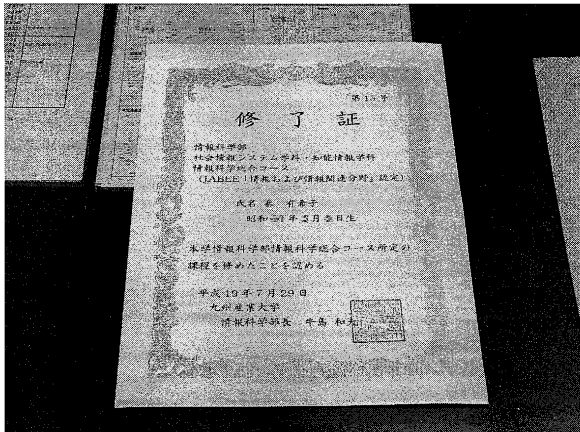 第15号
修了証
情報科学部
社会情報システム学科・知能情報学科
情報科学総合コース
(JABEE「情報および情報関連分野」認定)
氏名
昭和 年 月 日生
本学情報科学部情報科学総合コース所定の
課程を修めたことを認める
平成19年7月29日
九州産業大学
情報科学部長 牛島 和夫